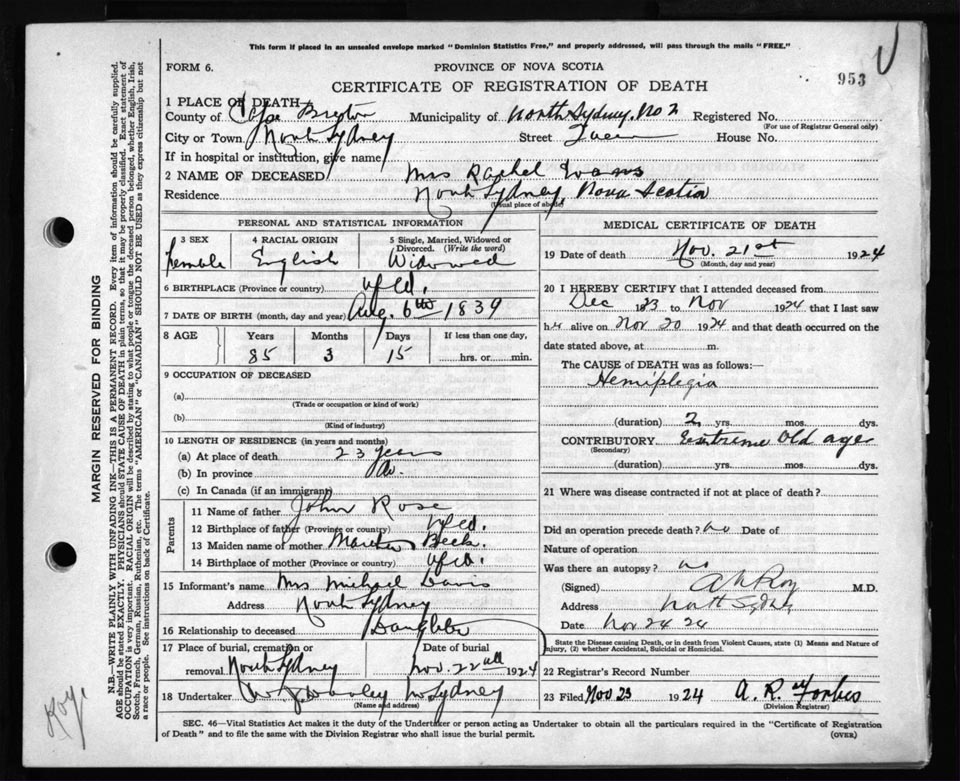 This form if placed in an unsealed envelope marked "Dominion Statistics Free," and properly addressed, will pass through the mails "FREE."
FORM 6.
PROVINCE OF NOVA SCOTIA
953
CERTIFICATE OF REGISTRATION OF DEATH
1 PLACE OF DEATH
County of Cape Breton Municipality of North Sydney No 2 Registered No.
(For use of Registrar General only)
City or Town North Sydney Street Queen House No.
If in hospital or institution, give name
2 NAME OF DECEASED Mrs Rachel Evans
Residence North Sydney Nova Scotia
(Usual place of abode)
PERSONAL AND STATISTICAL INFORMATION
3 SEX Female
4 RACIAL ORIGIN English
5 Single, Married, Widowed or Divorced. (Write the word) Widowed
6 BIRTHPLACE (Province or country) Nfld.
7 DATE OF BIRTH (month, day and year) Aug. 6th 1839
8 AGE Years Months Days If less than one day,
85 3 15 hrs. or min.
9 OCCUPATION OF DECEASED
(a)
(Trade or occupation or kind of work)
(b)
(Kind of industry)
10 LENGTH OF RESIDENCE (in years and months)
(a) At place of death 23 years
(b) In province Do.
(c) In Canada (if an immigrant)
Parents
11 Name of father John Rose
12 Birthplace of father (Province or country) Nfld.
13 Maiden name of mother Beck.
14 Birthplace of mother (Province or country) Nfld.
15 Informant's name Mrs Michael Davis
Address North Sydney
16 Relationship to deceased Daughter
17 Place of burial, cremation or removal North Sydney
Date of burial Nov. 22nd 1924
18 Undertaker N Sydney
(Name and address)
MEDICAL CERTIFICATE OF DEATH
19 Date of death Nov. 21st 1924
(Month, day and year)
20 I HEREBY CERTIFY that I attended deceased from
Dec 1923 to Nov 1924 that I last saw
her alive on Nov 20 1924 and that death occurred on the
date stated above, at m.
The CAUSE OF DEATH was as follows:—
Hemiplegia
(duration) 2 yrs. mos. dys.
CONTRIBUTORY Extreme Old age
(Secondary)
(duration) yrs. mos. dys.
21 Where was disease contracted if not at place of death?
Did an operation precede death? no Date of
Nature of operation
Was there an autopsy? no
(Signed) Roy M.D.
Address North Sydney
Date Nov 24 24
State the Disease causing Death, or in death from Violent Causes, state (1) Means and Nature of Injury, (2) whether Accidental, Suicidal or Homicidal.
22 Registrar's Record Number
23 Filed Nov 23 1924 A. R. Forbes
(Division Registrar)
SEC. 46—Vital Statistics Act makes it the duty of the Undertaker or person acting as Undertaker to obtain all the particulars required in the "Certificate of Registration
of Death" and to file the same with the Division Registrar who shall issue the burial permit.
(OVER)
MARGIN RESERVED FOR BINDING
N.B.—WRITE PLAINLY WITH UNFADING INK—THIS IS A PERMANENT RECORD. Every item of information should be carefully supplied.
AGE should be stated EXACTLY. PHYSICIANS should STATE CAUSE OF DEATH in plain terms, so that it may be properly classified. Exact statement of
OCCUPATION is very important. RACIAL ORIGIN will be described by stating to what people or tongue the deceased person belonged, whether English, Irish,
Scotch, French, German, Russian, Ruthenian, etc. The terms "AMERICAN" or "CANADIAN" SHOULD NOT BE USED as they express citizenship but not
a race or people. See instructions on back of Certificate.